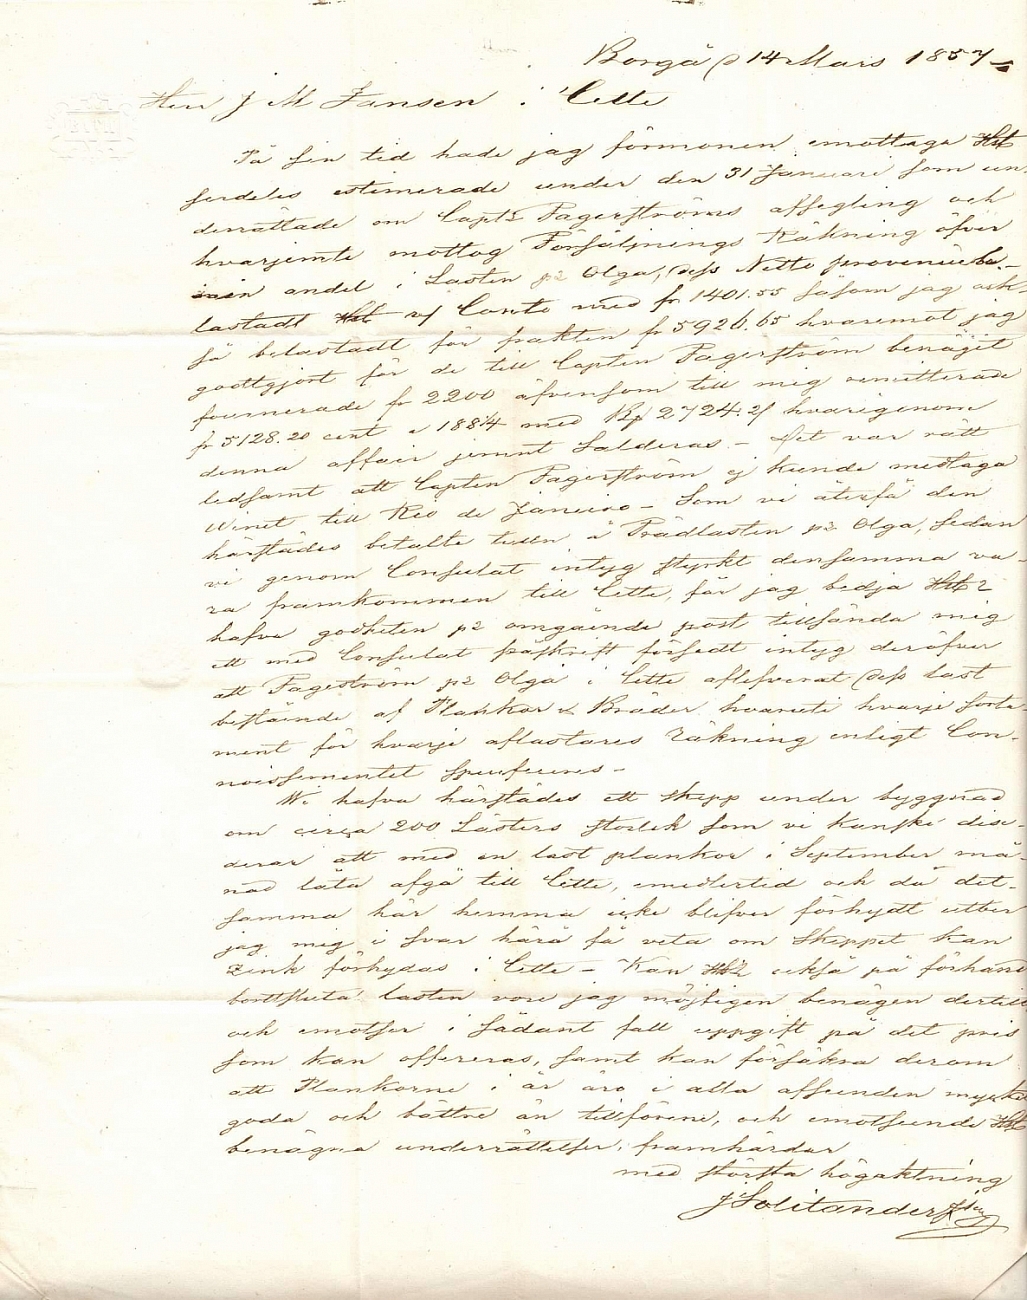 Borgå d 14 Mars 1857
Herr J M Jansen i Cette
På sin tid hade jag förmonen emottaga
serdeles estimerade under den 31 Januari som un-
derrättade om Captn Fagerströms affegling och
hvarjemte mottog Försäljnings Räkning öfver
min andel i Lasten på Olga, dess Netto provenue be-
lastadt i Conto med fr 1401.55 såsom jag ock-
så belastadt för frakten fr 5926.65 hvaremot jag
godtgjort för de till Capten Fagerström benäget
fournerade fr 2200 äfvensom till mig remitterade
fr 5128.20 cent a 188¼ med 2724.21 hvarigenom
denna affair jemnt Salderas – Det var rätt
ledsamt att Capten Fagerström ej kunde medtaga
Winet till Rio de Janeiro – Som vi återfå den
härstädes betalte tulln å Trädlasten på Olga, sedan
vi genom Consulat intyg styrkt densamma va-
ra framkommen till Cette, får jag bedja
hafva godheten på omgående post tillsända mig
ett med Consulat påskrift försedt intyg deröfver
att Fagerström på Olga i Cette aflefverat dess last
bestående af Plankor & Bräder hvaruti hvarje sorte-
ment för hvarje aflastares räkning enligt Con-
noissementet specificeras –
Wi hafva härstädes ett skepp under byggnad
om circa 200 Lästers storlek som vi kanske disi-
derar att med en last plankor i September må-
nad låta afgå till Cette, emedlertid och då det-
samma här hemma icke blifver förhydt utber
jag mig i svar härå få veta om Skeppet kan
zink förhydas i Cette – Kan också på förhand
bortsluta lasten vore jag möjligen benägen dertill
och emotser i sådant fall uppgift på det pris
som kan offereras, samt kan försäkra derom
att Plankorne i år äro i alla afseenden mycket
goda och bättre än tillförene, och emotseende
benägna underrättelser, framhärdar
med största högaktning
J Solitander